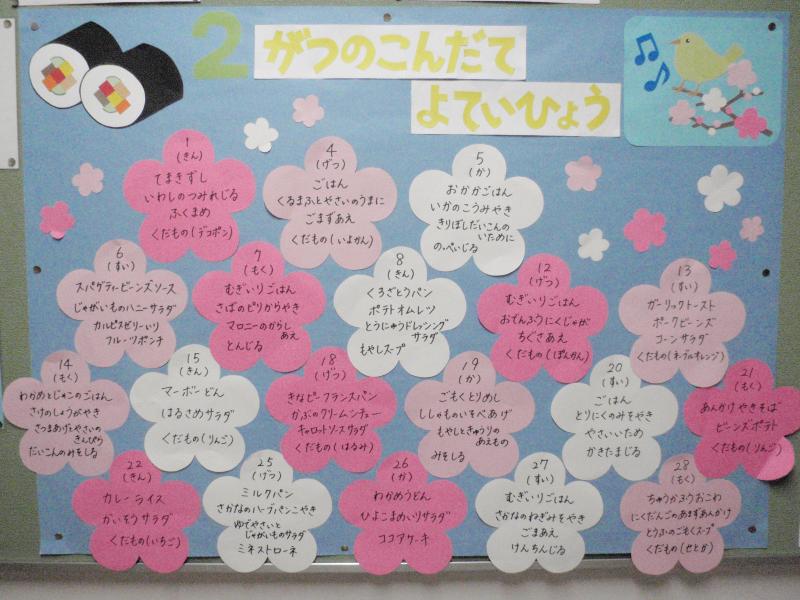 2がつのこんだて
よていひょう
1
(きん)
てまきずし
いわしのつみれじる
ふくまめ
くだもの(デコポン)
4
(げつ)
ごはん
くるまふとやさいのうまに
ごまずあえ
くだもの(いよかん)
5
(か)
おかかごはん
いかのこうみやき
きりぼしだいこんの
いために
のっぺいじる
6
(すい)
スパゲティービーンズソース
じゃがいものハニーサラダ
カルピスゼリーいり
フルーツポンチ
7
(もく)
むぎいりごはん
さばのピリからやき
マロニーのからし
あえ
とんじる
8
(きん)
くろざとうパン
ポテトオムレツ
とうにゅうドレッシング
サラダ
もやしスープ
12
(げつ)
むぎいりごはん
おでんふうにくじゃが
ちぐさあえ
くだもの(ぽんかん)
13
(すい)
ガーリックトースト
ポークビーンズ
コーンサラダ
くだもの(ネーブルオレンジ)
14
(もく)
わかめとじゃこのごはん
さけのしょうがやき
さつまあげとやさいの
きんぴら
だいこんのみそしる
15
(きん)
マーボーどん
はるさめサラダ
くだもの(りんご)
18
(げつ)
きなピーフランスパン
かぶのクリームシチュー
キャロットソースサラダ
くだもの(はるみ)
19
(か)
ごもくとりめし
ししゃものいそべあげ
もやしときゅうりの
あえもの
みそしる
20
(すい)
ごはん
とりにくのみそやき
やさいいため
かきたまじる
21
(もく)
あんかけやきそば
ビーンズポテト
くだもの(りんご)
22
(きん)
カレーライス
かいそうサラダ
くだもの(いちご)
25
(げつ)
ミルクパン
さかなのハーブパンこやき
ゆでやさいと
じゃがいものサラダ
ミネストローネ
26
(か)
わかめうどん
ひよこまめいりサラダ
ココアケーキ
27
(すい)
むぎいりごはん
さかなのねぎみそやき
ごまあえ
けんちんじる
28
(もく)
ちゅうかふうおこわ
にくだんごのあまずあんかけ
とうふのごもくスープ
くだもの(せとか)